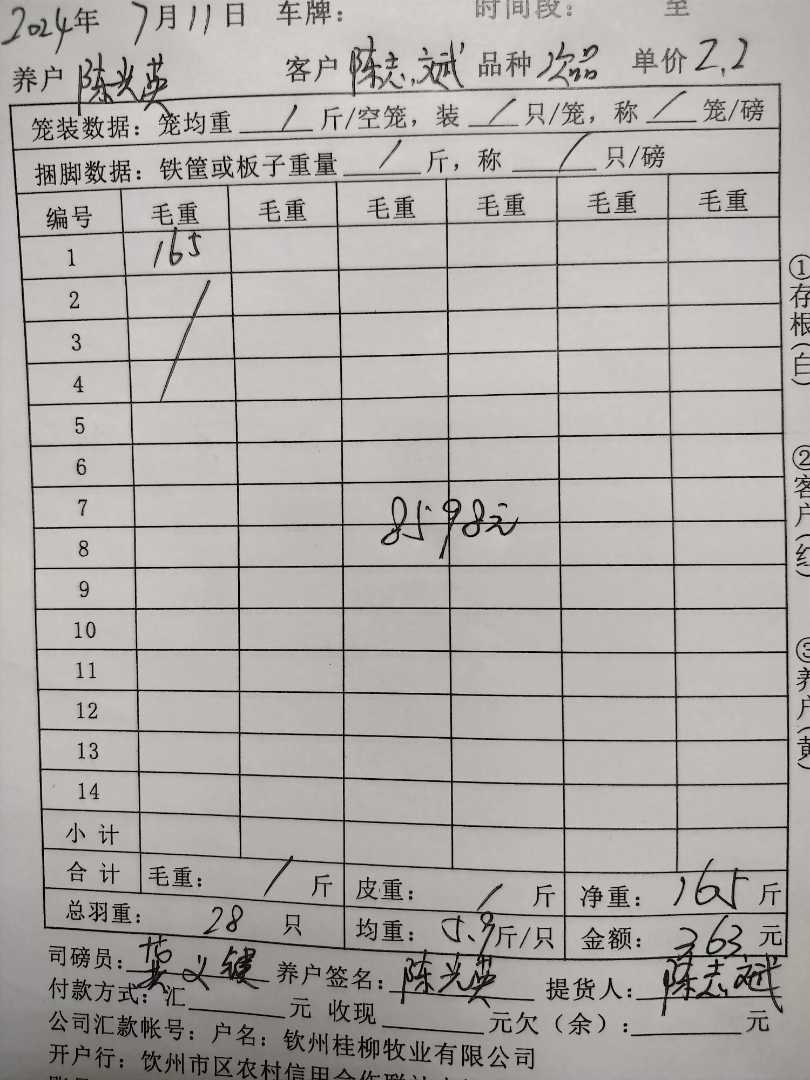 2024年 7月11日 车牌： 时间段： 至
养户 陈光英 客户 陈志斌 品种 次品 单价 2.2
笼装数据：笼均重 / 斤/空笼，装 / 只/笼，称 / 笼/磅
捆脚数据：铁筐或板子重量 / 斤，称 / 只/磅
编号 毛重 毛重 毛重 毛重 毛重 毛重
1 165
2
3
4
5
6
7
8598元
8
9
10
11
12
13
14
小计
合计 毛重： / 斤 皮重： / 斤 净重：165斤
总羽重： 28 只 均重：5.9斤/只 金额：363元
司磅员： 养户签名：陈光英 提货人：陈志斌
付款方式：汇 元 收现 元欠（余）： 元
公司汇款帐号：户名：钦州桂柳牧业有限公司
开户行：钦州市区农村信用合作联社
①存根（白） ②客户（红） ③养户（黄）